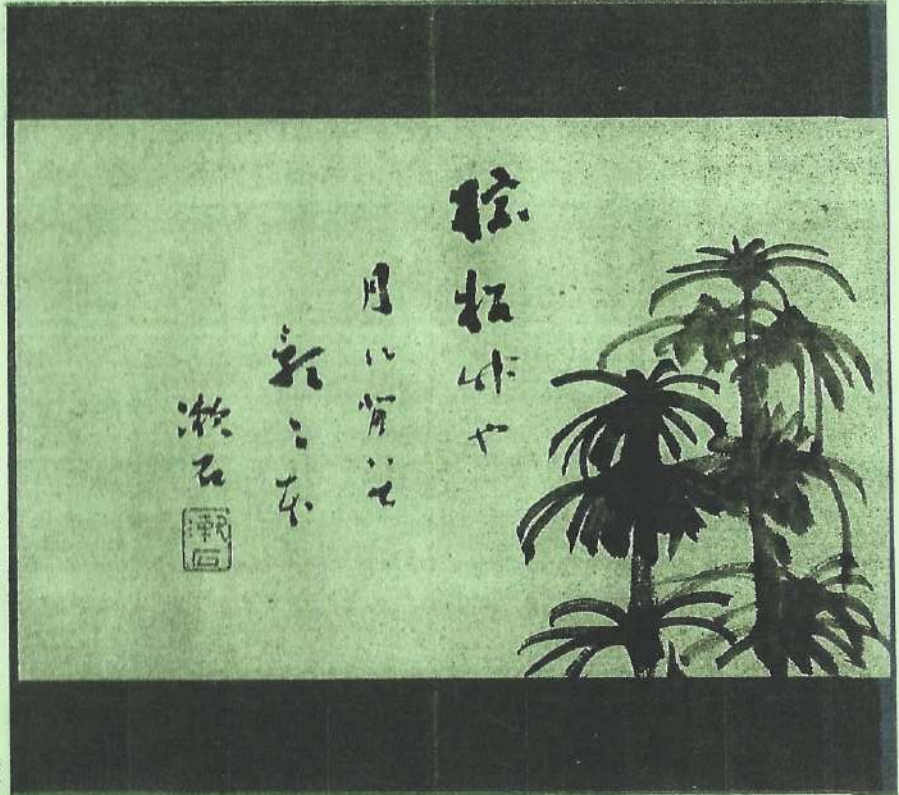 棕梠竹や
月に背いて
影二本
漱石
漱石